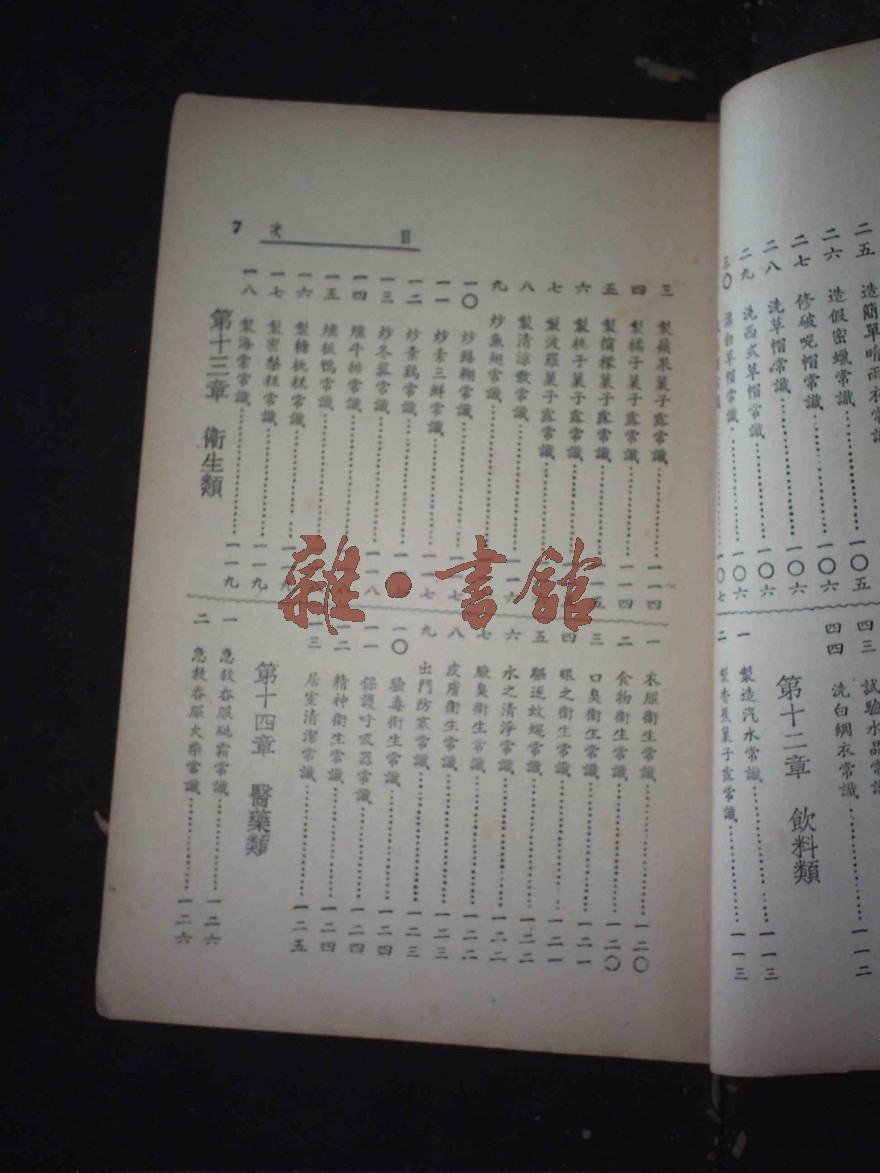 二五 造簡單晴雨衣常識 一〇五
二六 造假密蠟常識 一〇六
二七 修破呢帽常識 一〇六
二八 洗草帽常識 一〇六
二九 洗西式草帽常識 一〇六
三〇 漂白草帽常識 一〇七
四三 試驗水晶常識
四四 洗白綢衣常識 一一二
第十二章 飲料類
一 製造汽水常識 一一三
二 製香蕉菓子露常識 一一三
目次 7
三 製蘋果菓子露常識 一一四
四 製橘子菓子露常識 一一四
五 製檸檬菓子露常識 一一五
六 製桃子菓子露常識
七 製波羅菓子露常識
八 製清涼散常識 一一六
九 炒魚翅常識
一〇 炒鱔糊常識 一一七
一一 炒素三鮮常識 一一七
一二 炒素鷄常識
一三 炒冬菇常識 一一八
一四 燻牛排常識
一五 燻板鴨常識
一六 製糖桃糕常識
一七 製蜜梨糕常識 一一九
一八 製海棠常識 一一九
第十三章 衛生類
一 衣服衛生常識 一二〇
二 食物衛生常識 一二〇
三 口臭衛生常識 一二一
四 眼之衛生常識 一二一
五 驅逐蚊蠅常識 一二二
六 水之清淨常識 一二二
七 腋臭衛生常識 一二二
八 皮膚衛生常識 一二三
九 出門防寒常識 一二三
一〇 驗毒衛生常識 一二四
一一 保護呼吸器常識 一二四
一二 精神衛生常識 一二四
一三 居室清潔常識 一二五
第十四章 醫藥類
一 急救吞服砒霜常識 一二六
二 急救吞服火柴常識 一二六
雜·書館